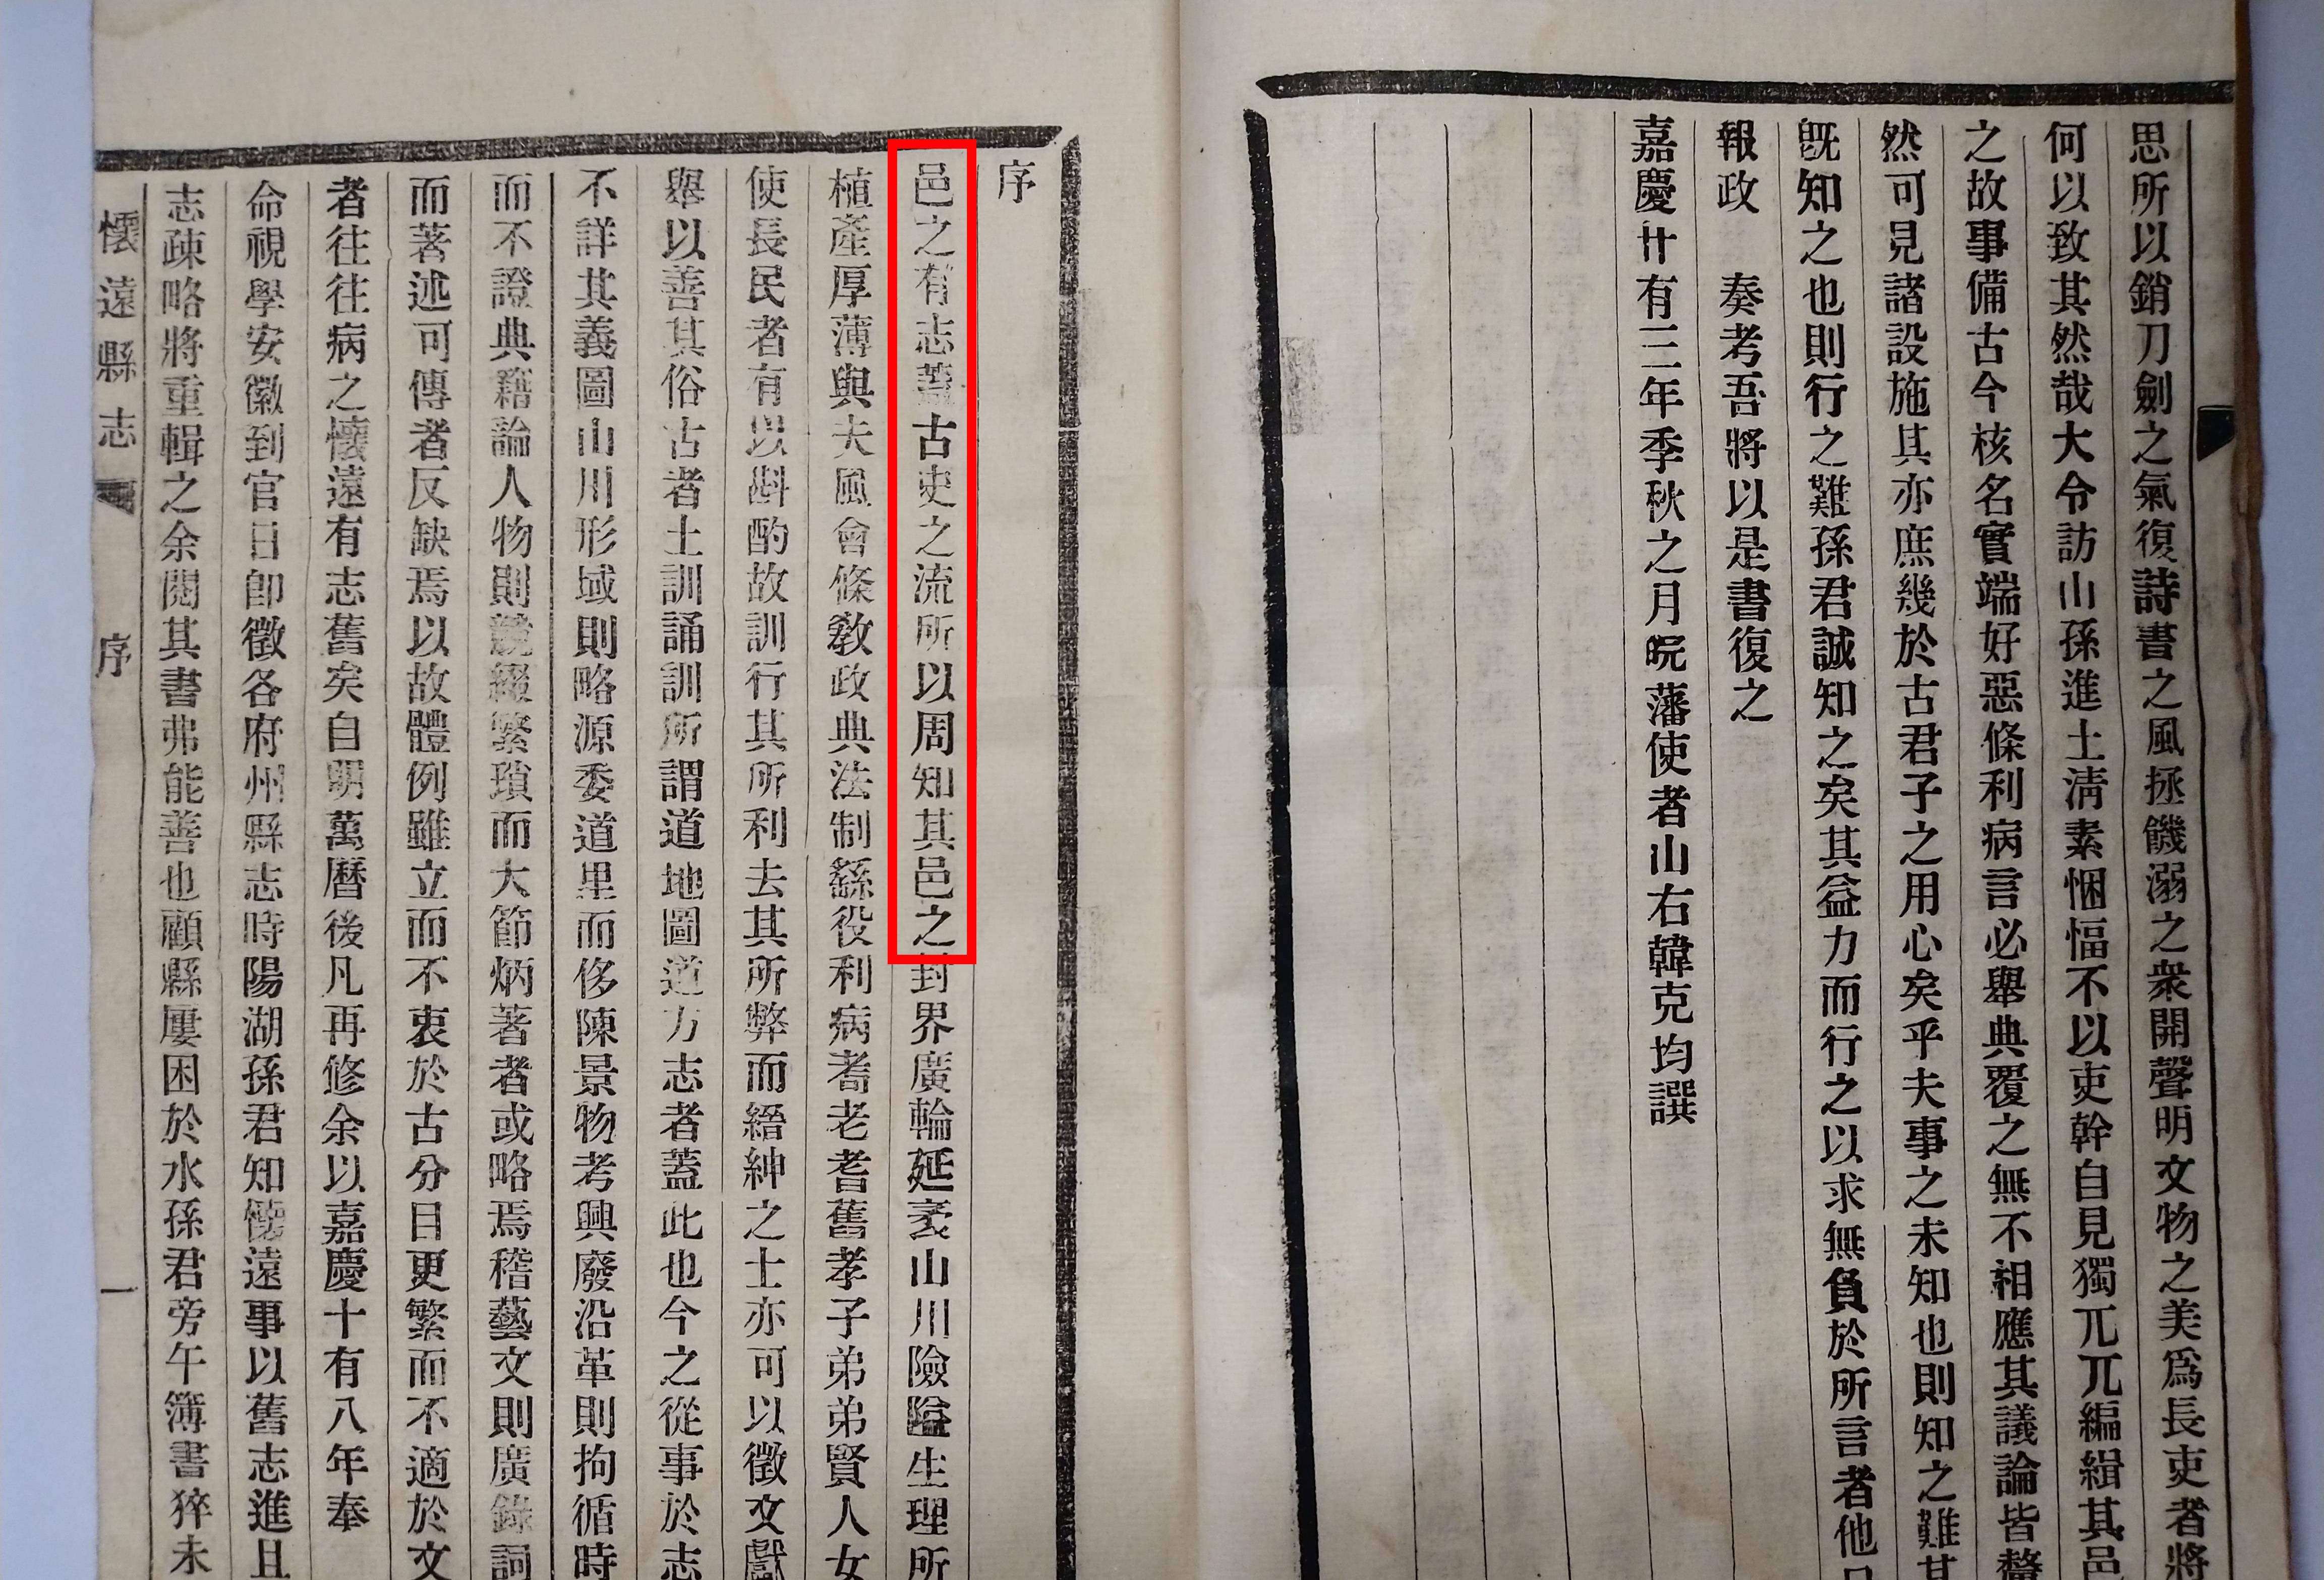 思所以銷刀劍之氣復詩書之風拯饑溺之衆開聲明文物之美爲長吏者將
何以致其然哉大令訪山孫進士淸素悃愊不以吏幹自見獨兀兀編緝其邑
之故事備古今核名實端好惡條利病言必舉典覆之無不相應其議論皆釐
然可見諸設施其亦庶幾於古君子之用心矣乎夫事之未知也則知之難其
旣知之也則行之難孫君誠知之矣其益力而行之以求無負於所言者他
報政　奏考吾將以是書復之
嘉慶廿有三年季秋之月皖藩使者山右韓克均譔
序
邑之有志蓋古史之流所以周知其邑之封界廣輪延袤山川險隘生理所
植產厚薄與夫風會條敎政典法制繇役利病耆老耆舊孝子弟弟賢人女
使長民者有以斟酌故訓行其所利去其所弊而縉紳之士亦可以徵文獻
舉以善其俗古者土訓誦訓所謂道地圖道方志者蓋此也今之從事於志
不詳其義圖山川形域則略源委道里而侈陳景物考興廢沿革則拘循時
而不證典籍論人物則競綴繁瑣而大節炳著者或略焉稽藝文則廣錄詞
而著述可傳者反缺焉以故體例雖立而不衷於古分目更繁而不適於文
者往往病之懷遠有志舊矣自明萬曆後凡再修余以嘉慶十有八年奉
命視學安徽到官日卽徵各府州縣志時陽湖孫君知懷遠事以舊志進且
志疎略將重輯之余閱其書弗能善也顧縣屢困於水孫君旁午簿書猝未
懷遠縣志　序　一